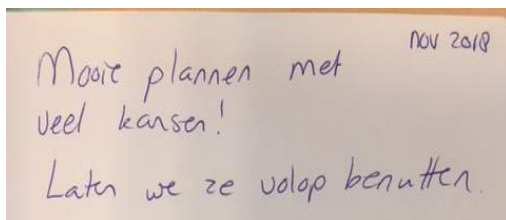 nov 2018
Mooie plannen met
veel kansen!
Laten we ze volop benutten.